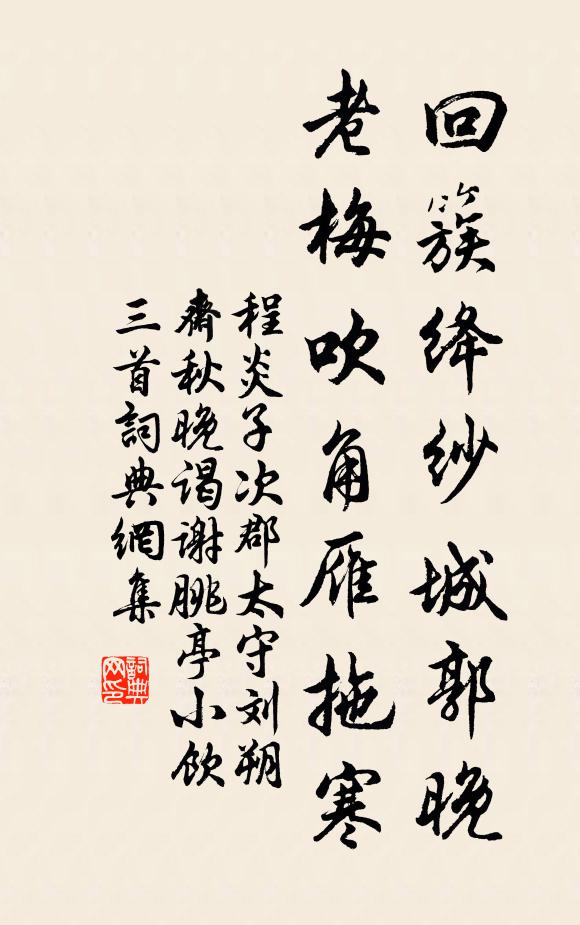 回簇绛纱城郭晚
老梅吹角雁拖寒
程炎子次郡太守刘朔
齋秋晚谒谢朓亭小飲
三首詞典網集
詞典网印